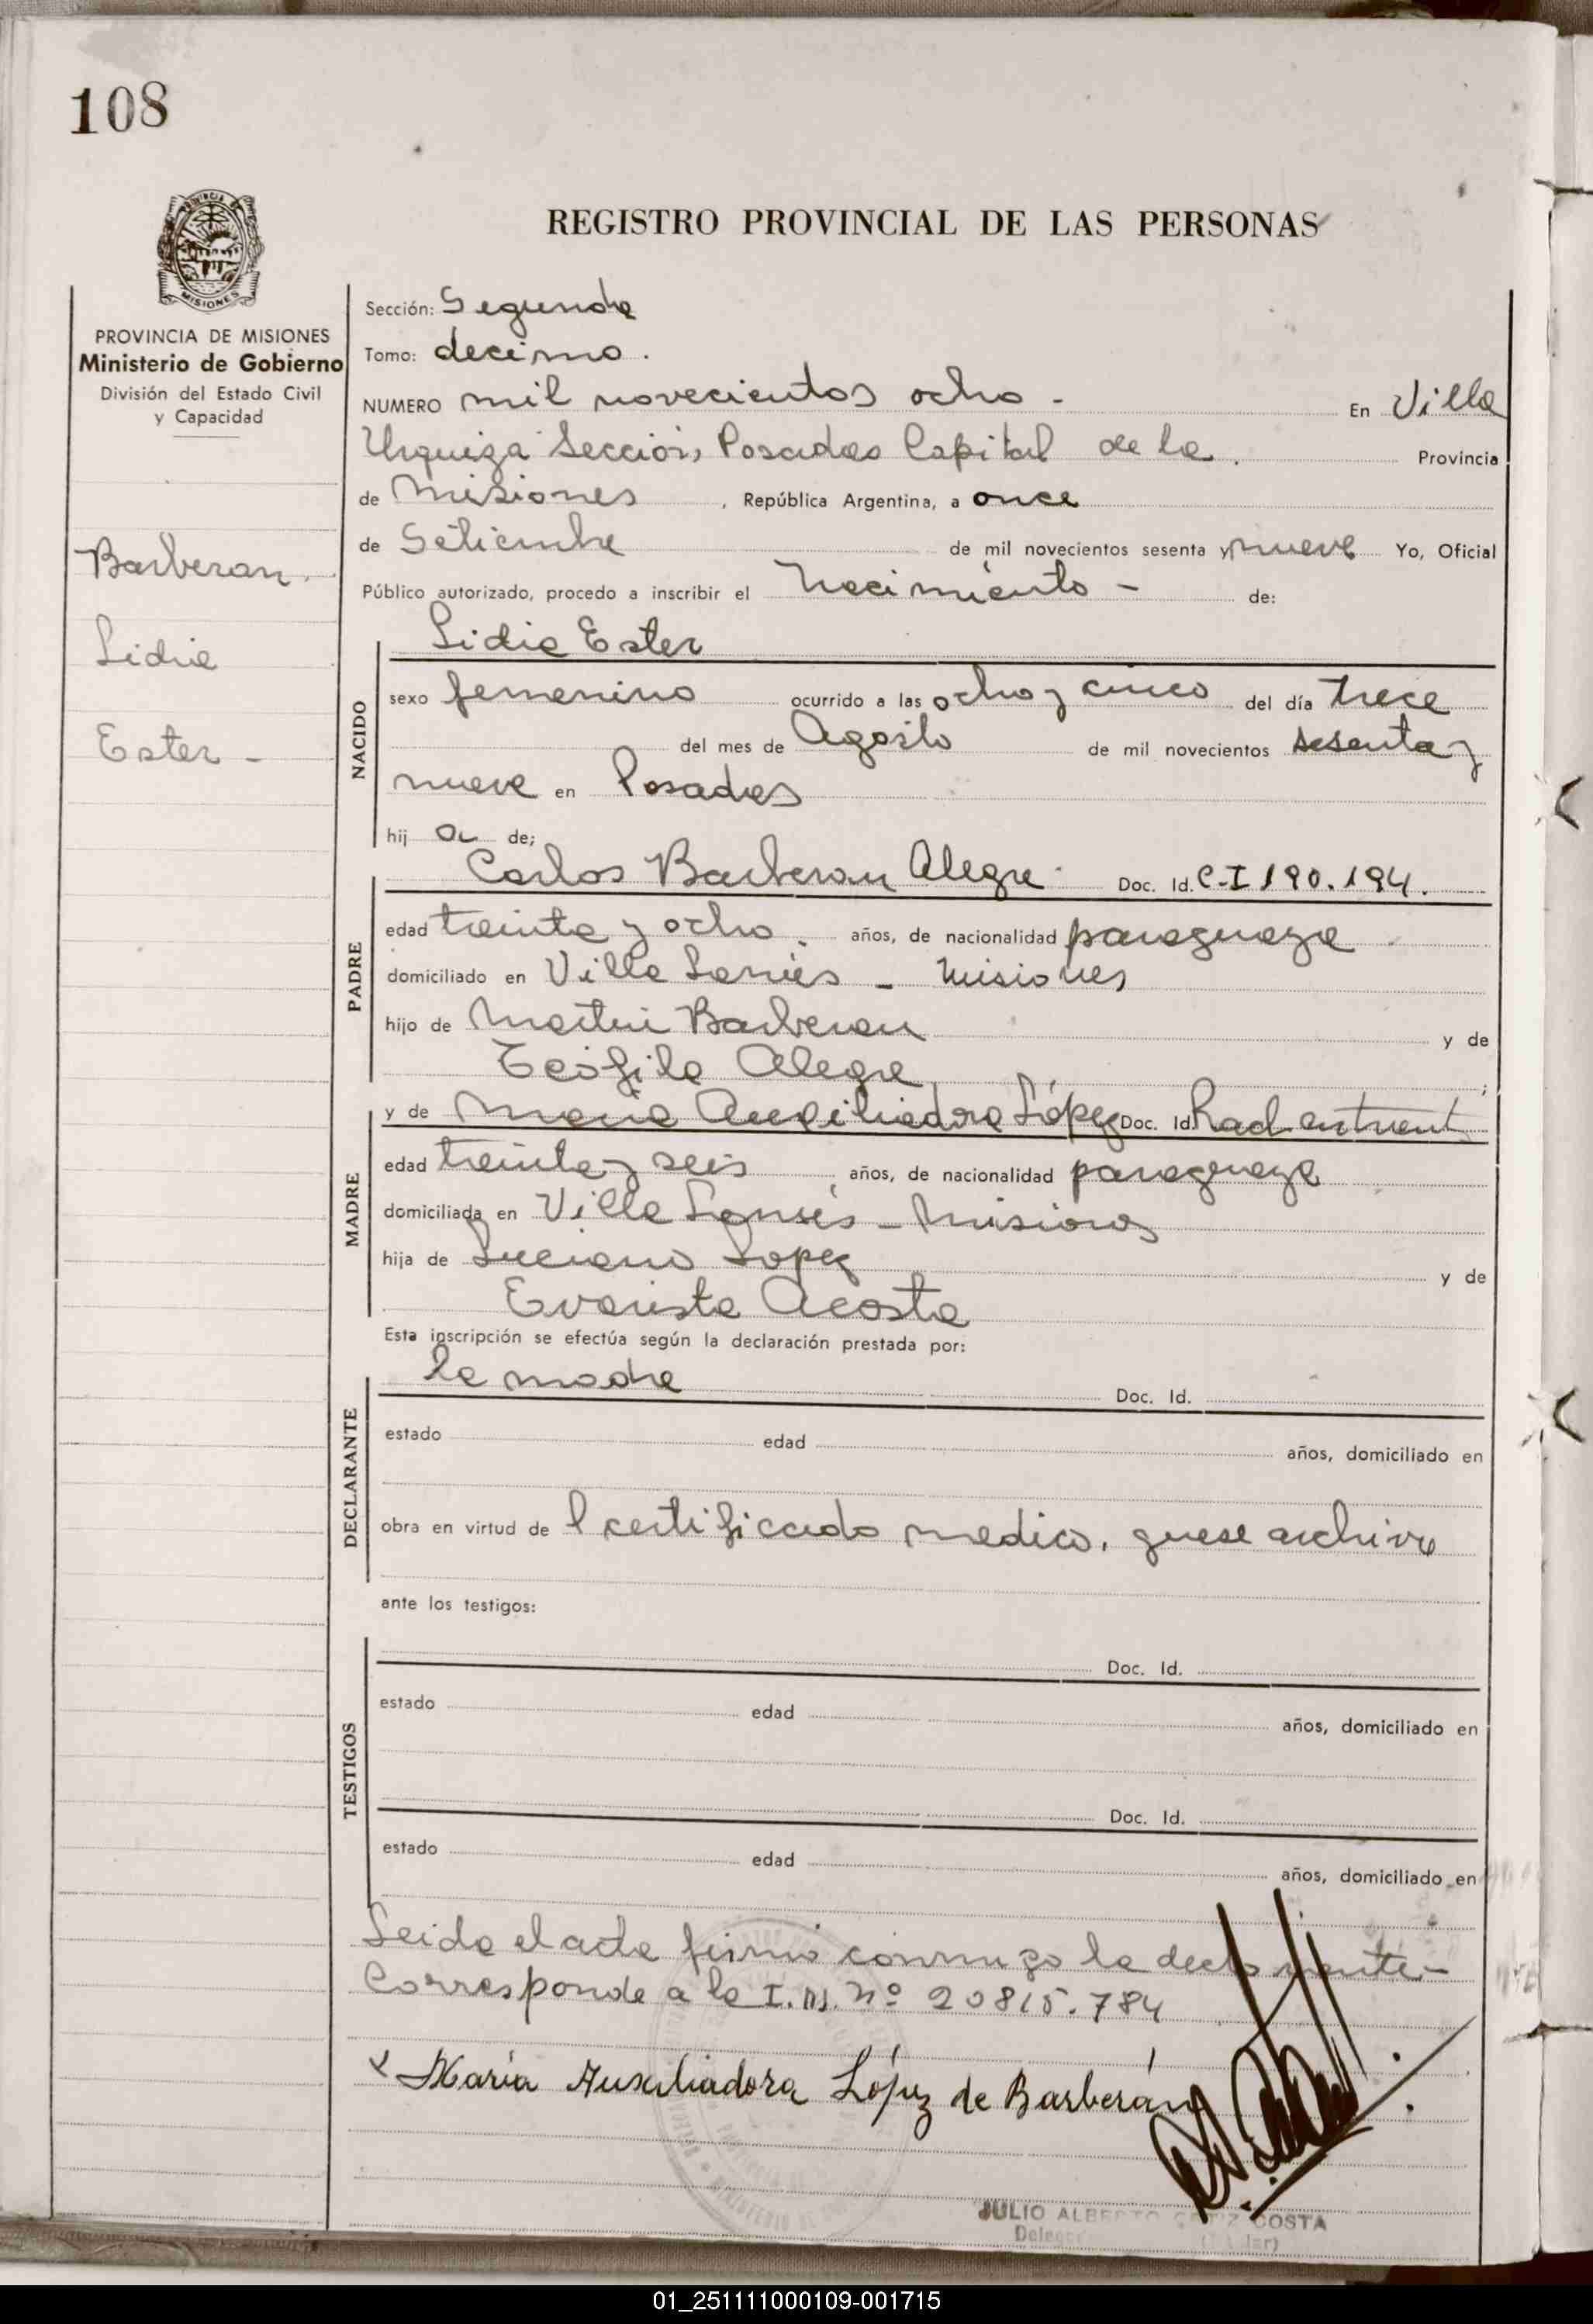 108
REGISTRO PROVINCIAL DE LAS PERSONAS
MISIONES
PROVINCIA DE MISIONES
Ministerio de Gobierno
División del Estado Civil
y Capacidad
Barberan
Lidia
Ester -
Sección: Segunda
Tomo: decimo.
NUMERO mil novecientos ocho - En Villa
Urquiza Sección, Posadas Capital de la Provincia
de Misiones, República Argentina, a once
de Setiembre de mil novecientos sesenta y nueve Yo, Oficial
Público autorizado, procedo a inscribir el Nacimiento - de:
Lidia Ester
NACIDO
sexo femenino ocurrido a las ocho y cinco del día trece
del mes de Agosto de mil novecientos sesenta y
nueve en Posadas
hij a de;
Carlos Barberan Alegre Doc. Id. C-I 190.194.
PADRE
edad treinta y ocho años, de nacionalidad paraguaya
domiciliado en Villa Lanús - Misiones
hijo de Martin Barberan y de
Teófila Alegre;
y de Maria Auxiliadora López Doc. Id. Rad. en tramt
MADRE
edad treinta y seis años, de nacionalidad paraguaya
domiciliada en Villa Lanús - Misiones
hija de Luciano Lopez y de
Evarista Acosta
Esta inscripción se efectúa según la declaración prestada por:
la madre Doc. Id.
DECLARANTE
estado edad años, domiciliado en
obra en virtud de l certificado medico, que se archiva
ante los testigos:
Doc. Id.
TESTIGOS
estado edad años, domiciliado en
Doc. Id.
estado edad años, domiciliado en
Leida el acta firmó conmigo la declarante -
Corresponde a la I.M. Nº 20815.784
x María Auxiliadora López de Barberán
JULIO ALBERTO COSTA
01_251111000109-001715